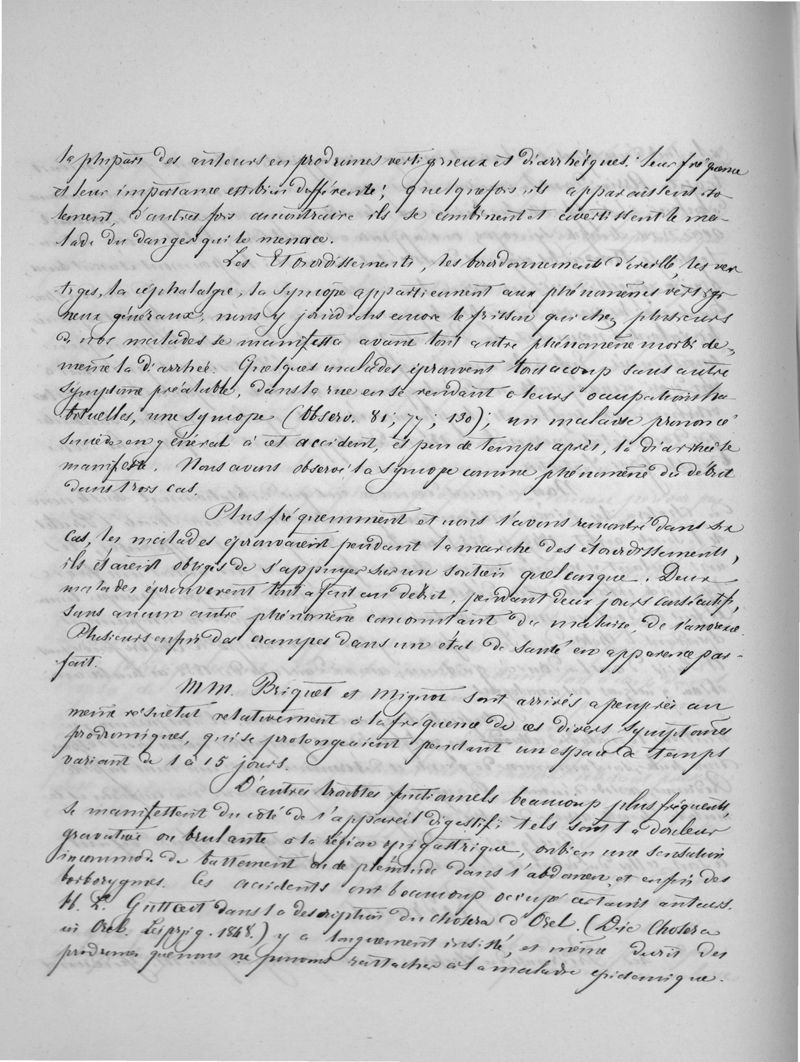 la plupart des auteurs en prodromes vertigineux et diarrhéïques; leur fréquence
et leur importance est bien différente; quelquefois ils apparaissent iso-
lement, d'autres fois au contraire ils se combinent et avertissent le ma-
lade du danger qui le menace.
Les Etourdissements, les bourdonnements d'oreille, les ver-
tiges, la céphalalgie, la syncope appartiennent aux phénomènes vertigi-
neux généraux, nous y joindrons encore le frisson qui chez plusieurs
de nos malades se manifesta avant tout autre phénomène morbide,
même la diarrhée. Quelques malades éprouvent tout à coup sans autre
symptôme préalable, dans la rue en se rendant à leurs occupations ha-
bituelles, une syncope (Observ. 81; 77; 130); un malaise prononcé
succède en général à cet accident, et peu de temps après, la diarrhée se
manifeste. Nous avons observé la syncope comme phénomène du début
dans trois cas.
Plus fréquemment et nous l'avons rencontré dans six
cas, les malades éprouvaient pendant la marche des étourdissements,
ils étaient obligés de s'appuyer sur un soutien quelconque. Deux
malades éprouvèrent tout à fait au début, pendant deux jours consécutifs,
sans aucun autre phénomène concomitant du malaise, de l'anorexie.
Plusieurs enfin des crampes dans un état de santé en apparence par-
fait.
MM. Briquet et Mignot sont arrivés à peu près au
même résultat relativement à la fréquence de ces divers symptômes
prodromiques, qui se prolongeaient pendant un espace de temps
variant de 1 à 15 jours.
D'autres troubles fonctionnels beaucoup plus fréquents,
se manifestent du côté de l'appareil digestif: tels sont la douleur
gravative ou brulante à la région épigastrique, ou bien une sensation
incommode de battement ou de plénitude dans l'abdomen, et enfin des
borborygmes. Ces accidents ont beaucoup occupé certains auteurs.
H. L. Guttceit dans la description du choléra d'Orel. (Die Cholera
in Orel. Leipzig. 1848.) y a longuement insisté, et même décrit des
prodromes que nous ne pouvons rattacher à la maladie épidémique.